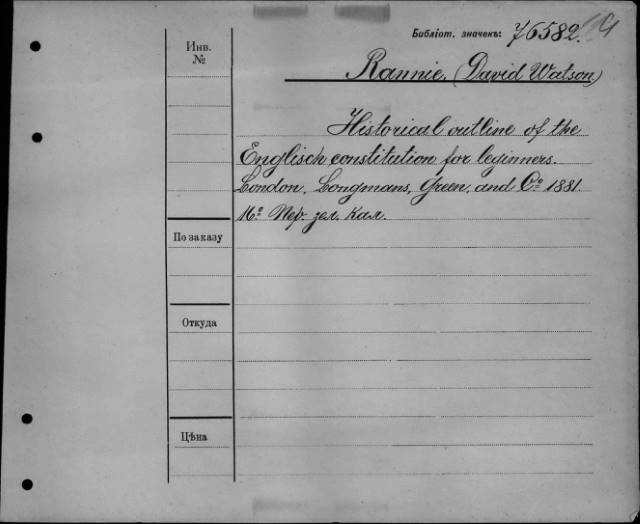 Библіот. значекъ: 76582.
Инв.
№
Rannie, (David Watson)
Historical outline of the
Englisch constitution for beginners.
London, Longmans, Green, and Cº 1881.
16º Пер. зел. кал.
По заказу
Откуда
Цѣна